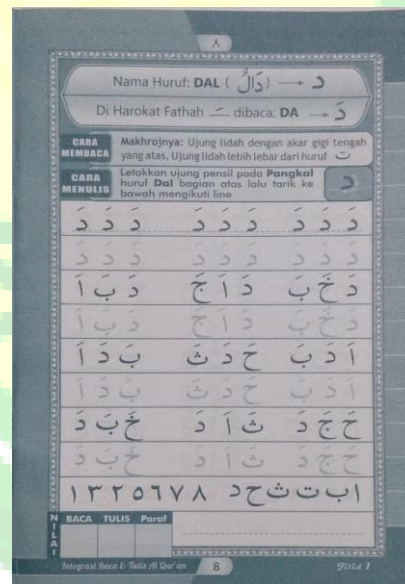 ٨
Nama Huruf: DAL ( دَالٌ ) → د
Di Harokat Fathah ـَ dibaca: DA → دَ
CARA MEMBACA
Makhrojnya: Ujung lidah dengan akar gigi tengah
yang atas, Ujung lidah lebih lebar dari huruf ت
CARA MENULIS
Letakkan ujung pensil pada Pangkal
huruf Dal bagian atas lalu tarik ke
bawah mengikuti line
د
دَ دَ دَ دَ دَ دَ دَ دَ دَ
دَ دَ دَ دَ دَ دَ دَ دَ دَ
دَ خَ بَ دَ اَ جَ دَ بَ اَ
دَ خَ بَ دَ اَ جَ دَ بَ اَ
اَ دَ بَ حَ دَ ثَ بَ دَ اَ
اَ دَ بَ حَ دَ ثَ بَ دَ اَ
حَ جَ دَ ثَ اَ دَ خَ بَ دَ
حَ جَ دَ ثَ اَ دَ خَ بَ دَ
ا ب ت ث ح د
NILAI BACA TULIS Paraf
Integrasi Baca & Tulis Al Qur'an 8 Jilid 1